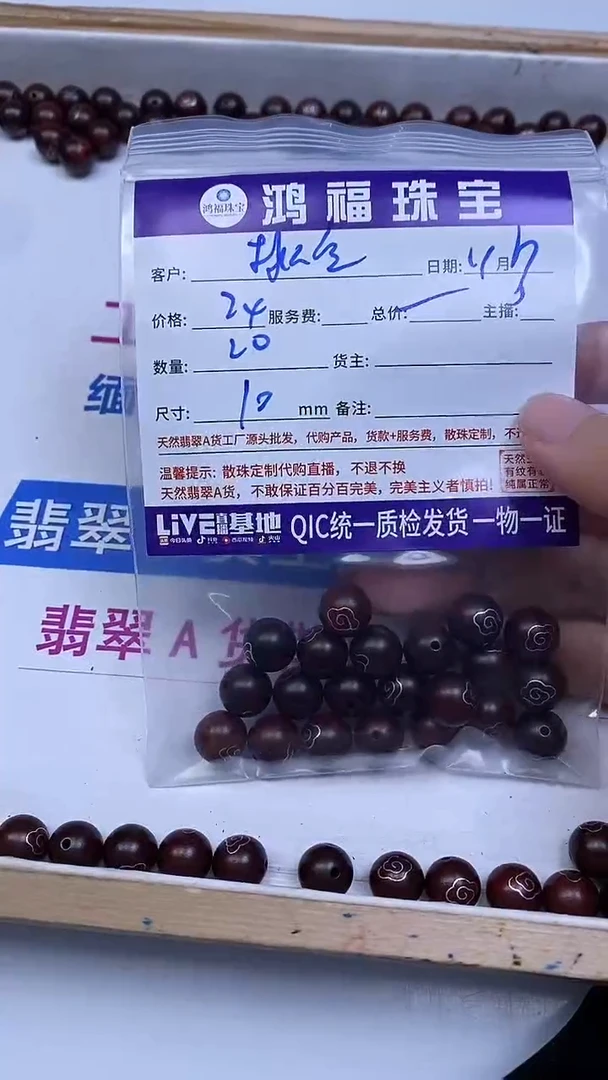 鸿福珠宝
鸿福珠宝
客户: 日期: 月
价格: 24 服务费: 总价: 主播:
数量: 20 货主:
尺寸: 10 mm 备注:
天然翡翠A货工厂源头批发，代购产品，货款+服务费，散珠定制，不
温馨提示: 散珠定制代购直播，不退不换
天然翡翠A货，不敢保证百分百完美，完美主义者慎拍!
天然
有纹有
纯属正常
LiVE直播基地 QIC统一质检发货 一物一证
今日头条 抖音 西瓜视频 火山
缅
翡翠
翡翠 A 货